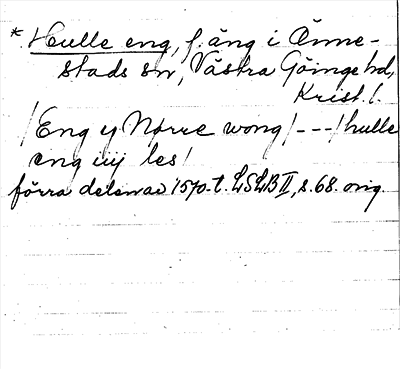 * Hulle eng, f. äng i Önne-
stads sn, Västra Göinge hd,
Krist. l.
/Eng y Nørre wong/---/hulle
eng iiij les/
förra delen av 1570-t. LSLB II, s. 68. orig.